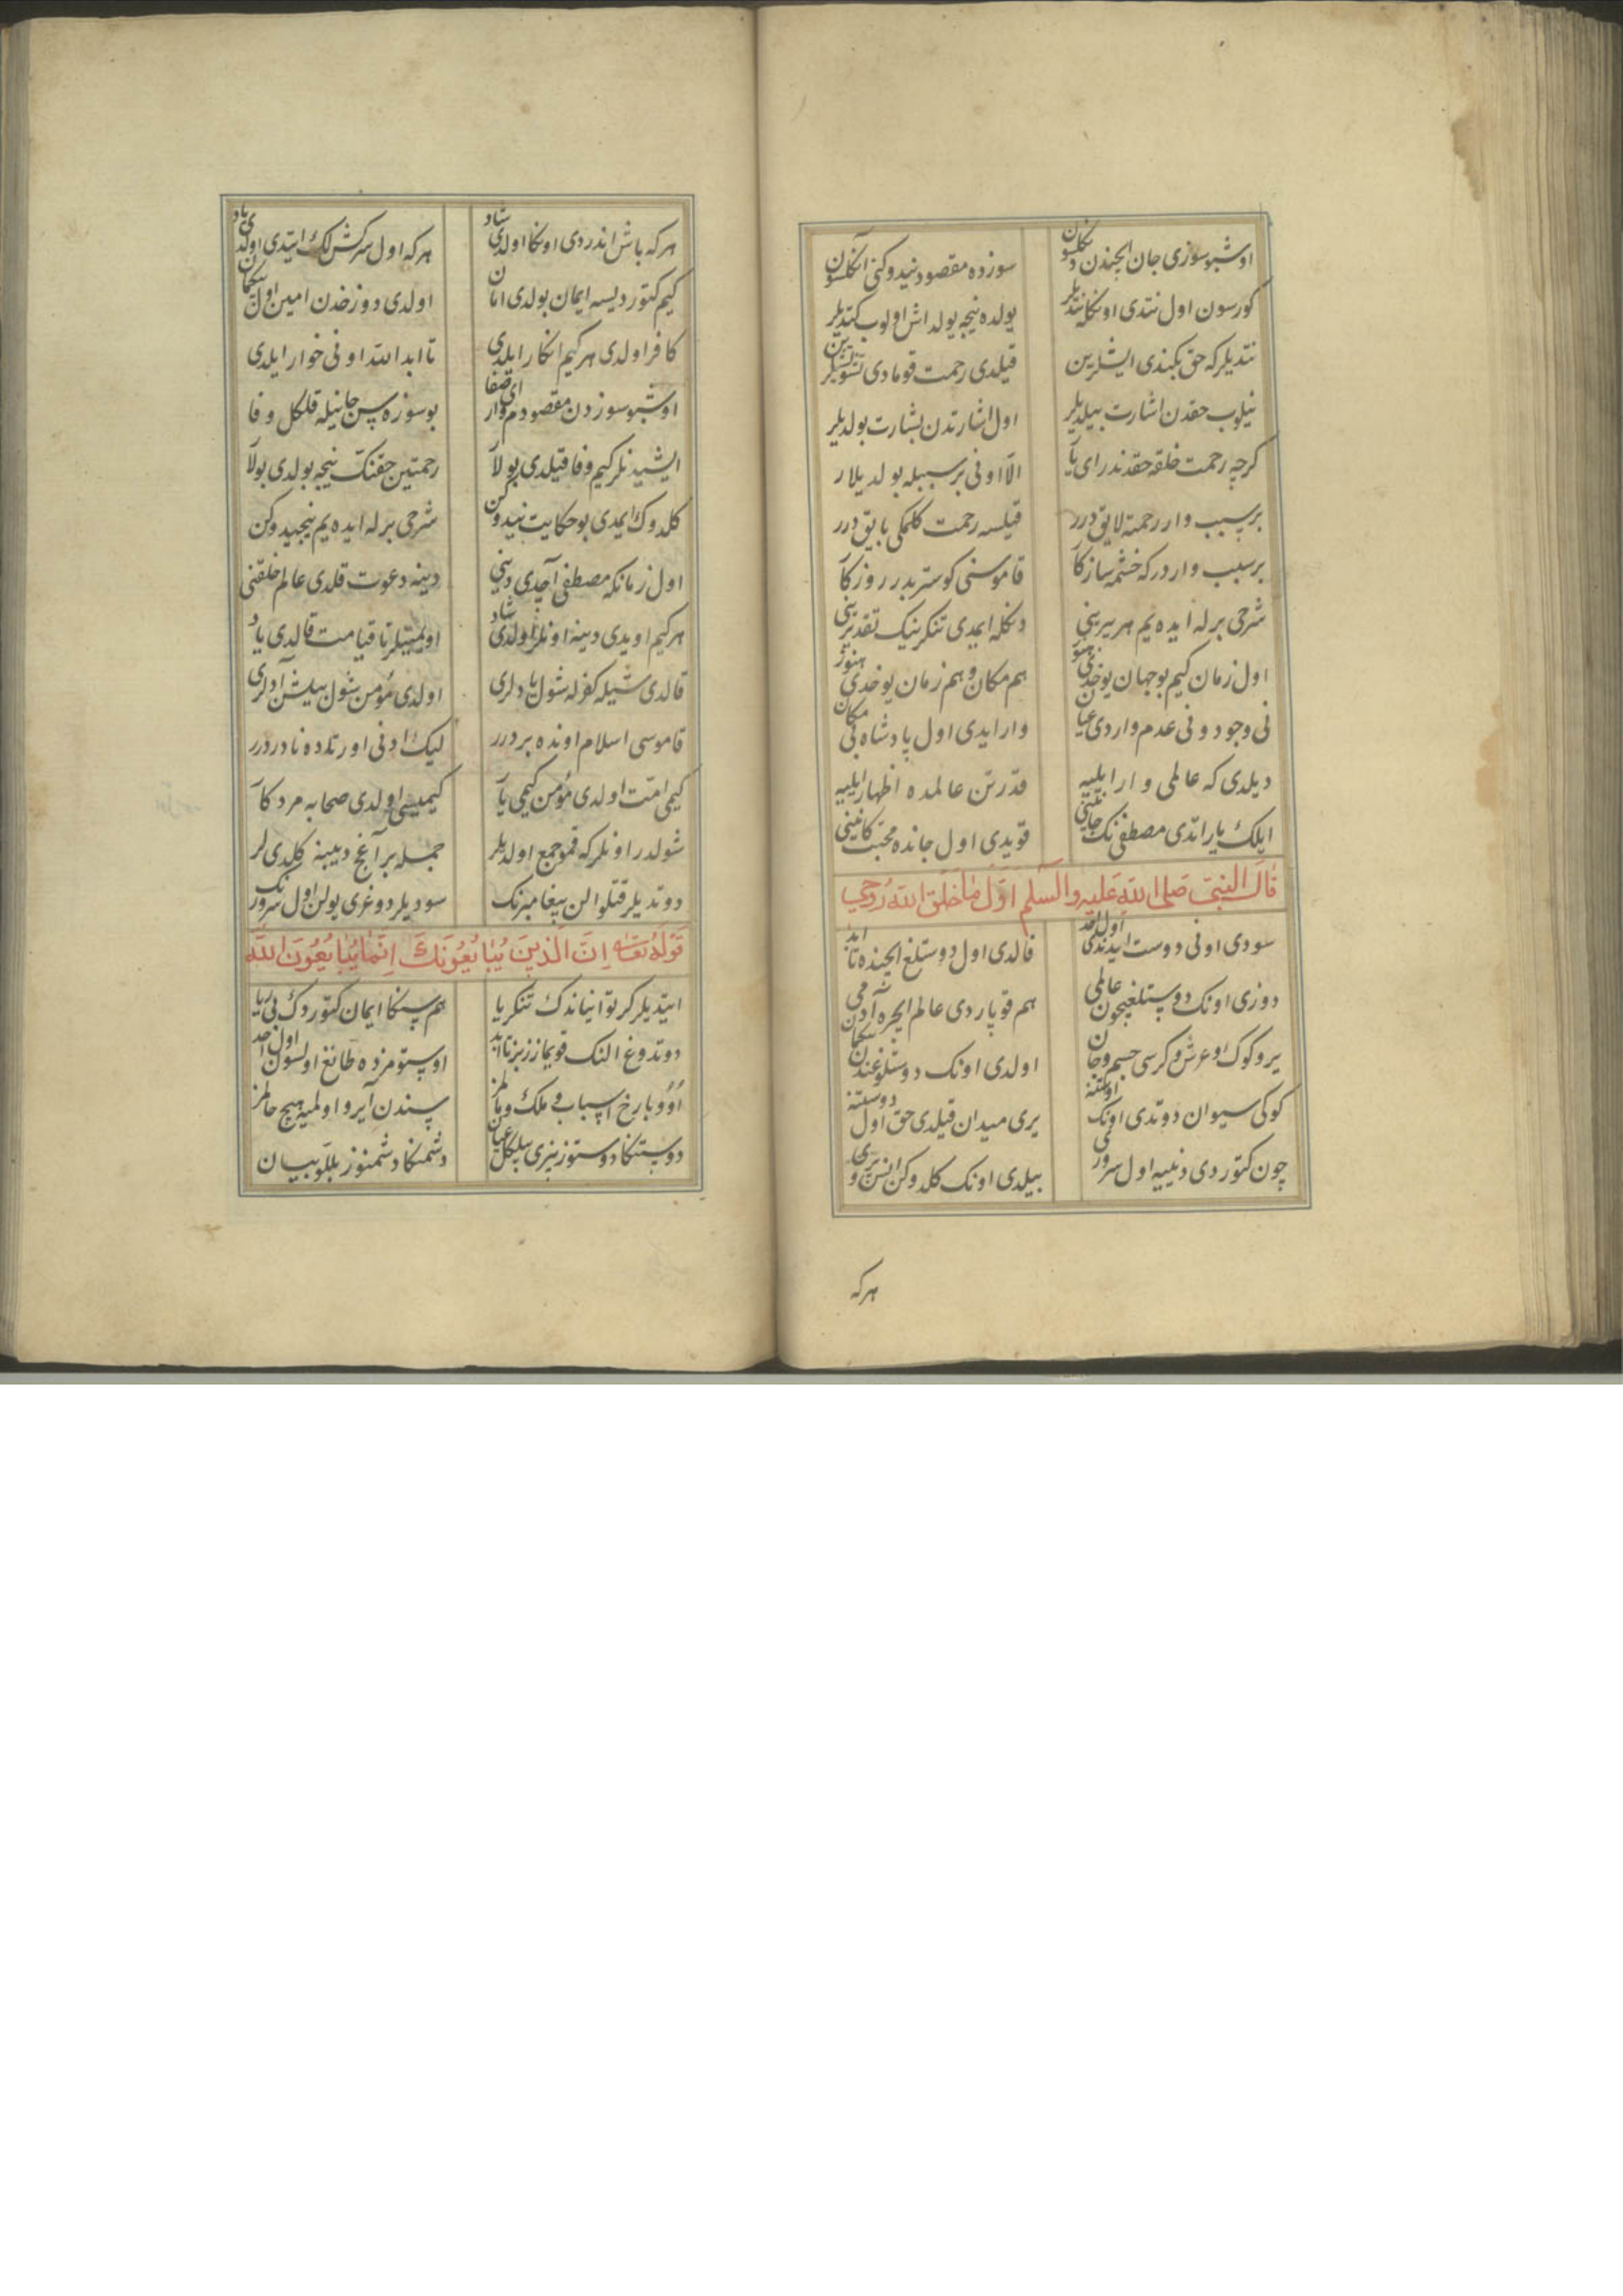 اوشبو سوزی جان ایچندن دکلسون سوزده مقصود نیدوکنی آنکلسون
کورسون اول نتدی اونکله نتدیلر یولده نیجه یولداش اولوب کتدیلر
نتدیلر که حق بکندی ایشلرین قیلدی رحمت قومادی تشویشلرین
نیلوب حقدن اشارت بیلدیلر اول اشارتدن بشارت بولدیلر
کرچه رحمت خلقه حقدندر ای یا الا اونی بر سببله بولدیلار
بر سبب وار رحمته لایق درر قیلسه رحمت کلمکی بایق درر
بر سبب واردر که خشم سازکا قاموسنی کوستریدرر روزکا
شرحی برله ایده یم هر برینی دنکله ایمدی تنکرینک تقدیرینی
اول زمان کیم بو جهان یوخدی هنوز هم مکان و هم زمان یوخدی هنوز
نی وجود و نی عدم واردی عیان وار ایدی اول پادشاه بی مکان
دیلدی که عالمی وار ایلییه قدرتن عالمده اظهار ایلییه
ایلک یاراتدی مصطفی نک جانینی قویدی اول جانده محبت کانینی
قَالَ النَّبِیّ صَلی اللهِ عَلَیهِ والسَلم اَوَّل مَا خَلَقَ الله رُوحی
سودی اونی دوست ایدندی اول احد قالدی اول دوستلغ ایچنده تا ابد
دوزدی اونک دوستلغیچون عالمی هم قوپاردی عالم ایچره آدمی
یر و کوک و عرش و کرسی جسم و جان اولدی اونک دوستلوغندن بیکمان
کوکی سیوان دوتدی اونک اوستنه یری میدان قیلدی حق اول دوستنه
چون کتوردی دنییه اول سروری بیلدی اونک کلدوکن انس و پری
هرکه
هرکه باش اندردی اونکا اولدی شاد هرکه اول سرکش لک ایتدی اولدی یاد
کیم کتوردیسه ایمان بولدی امان اولدی دوزخدن امین اول بیکمان
کافر اولدی هر کیم انکار ایلدی تا ابد الله اونی خوار ایلدی
اوشبو سوزدن مقصودم وار ای صفا بو سوزه سن جانیله قلکل وفا
ایشیدنلر کیم وفا قیلدی بولا رحمتین حقنک نیجه بولدی بولا
کلدوک ایمدی بو حکایت نیدوکن شرحی برله ایده یم نیجیدوکن
اول زمانکه مصطفی آچدی دینی دینه دعوت قلدی عالم خلقنی
هر کیم اویدی دینه اونلر اولدی شاد اویمیتلر تا قیامت قالدی یاد
قالدی شیله کفرله شول یادلری اولدی مؤمن شول بیلش آدلری
قاموسی اسلام اونده بر درر لیک اونی اورتاده نادر درر
کیمی امت اولدی مؤمن کیمی یآ کیمیسی اولدی صحابه مرد کآ
شولدر اونلر که قمو جمع اولدیلر جمله بر آغچ دیبینه کلدی لر
دوتدیلر قتلو الن پیغامبرنک سودیلر دوغری یولن اول سرورنک
قَوْلُهُ تَعَالی اِنَّ الَّذینَ یُبَایُعُونَکَ اِنَّمَا یُبَایِعُونَ اللهَ
ایتدیلر کرتو ایناندک تنکریا هم سنکا ایمان کتوردک بی ریا
دوتدوغ النک قویمازز بز تا ابد اوستومزده طانغ اولسون اول احد
اَوُو بارخ اسباب و ملک و مالمز سندن آیرو اولمیه هیچ حالمز
دوستنکا دوستوز بزی بیلکل عیان دشمنکا دشمنوز بللو بیان